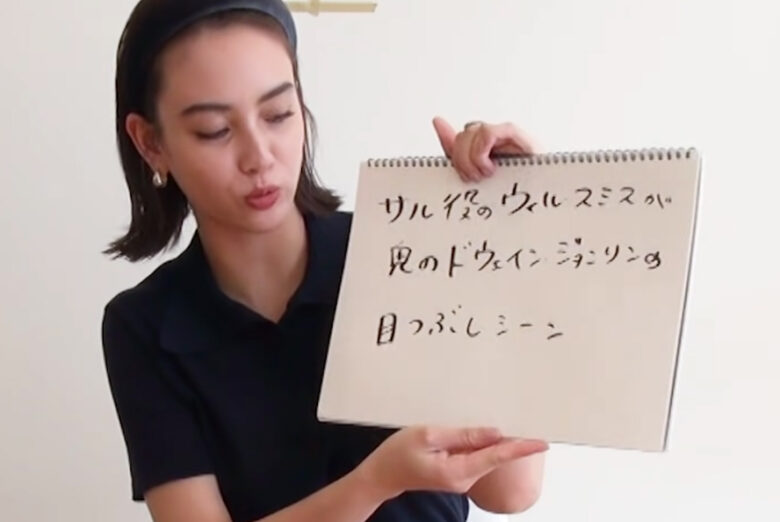 サル役のウィル・スミスが
鬼のドウェイン・ジョンソンの
目つぶしシーン